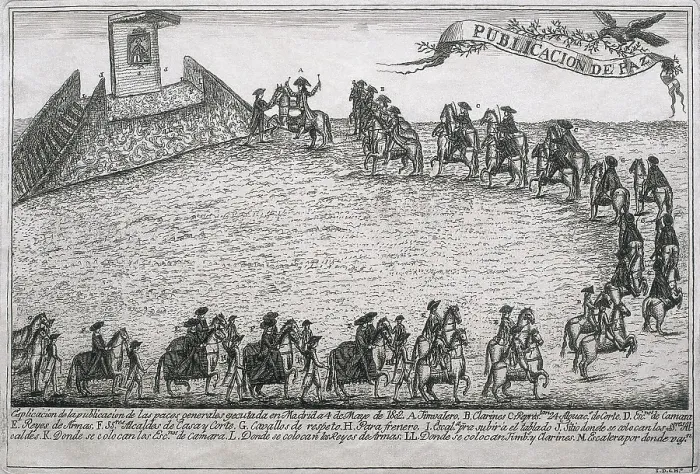 PUBLICACION DE PAZ
Esplicacion de la publicacion de las paces generales egecutada en Madrid a 4 de Mayo de 182. A. Timvalero, B. Clarines C. 24 de Corte. D. de Camara
E. Reyes de Armas. F. Alcaldes de Casa y Corte. G. Cavallos de respeto. H. Para frenero. I. pra subir a el tablado J. Sitio donde se colocan los Al
caldes. K. Donde se colocan los de Camara. L. Donde se colocan los Reyes de Armas. LL. Donde se colocan Timb. y Clarines. M. Escalera por donde